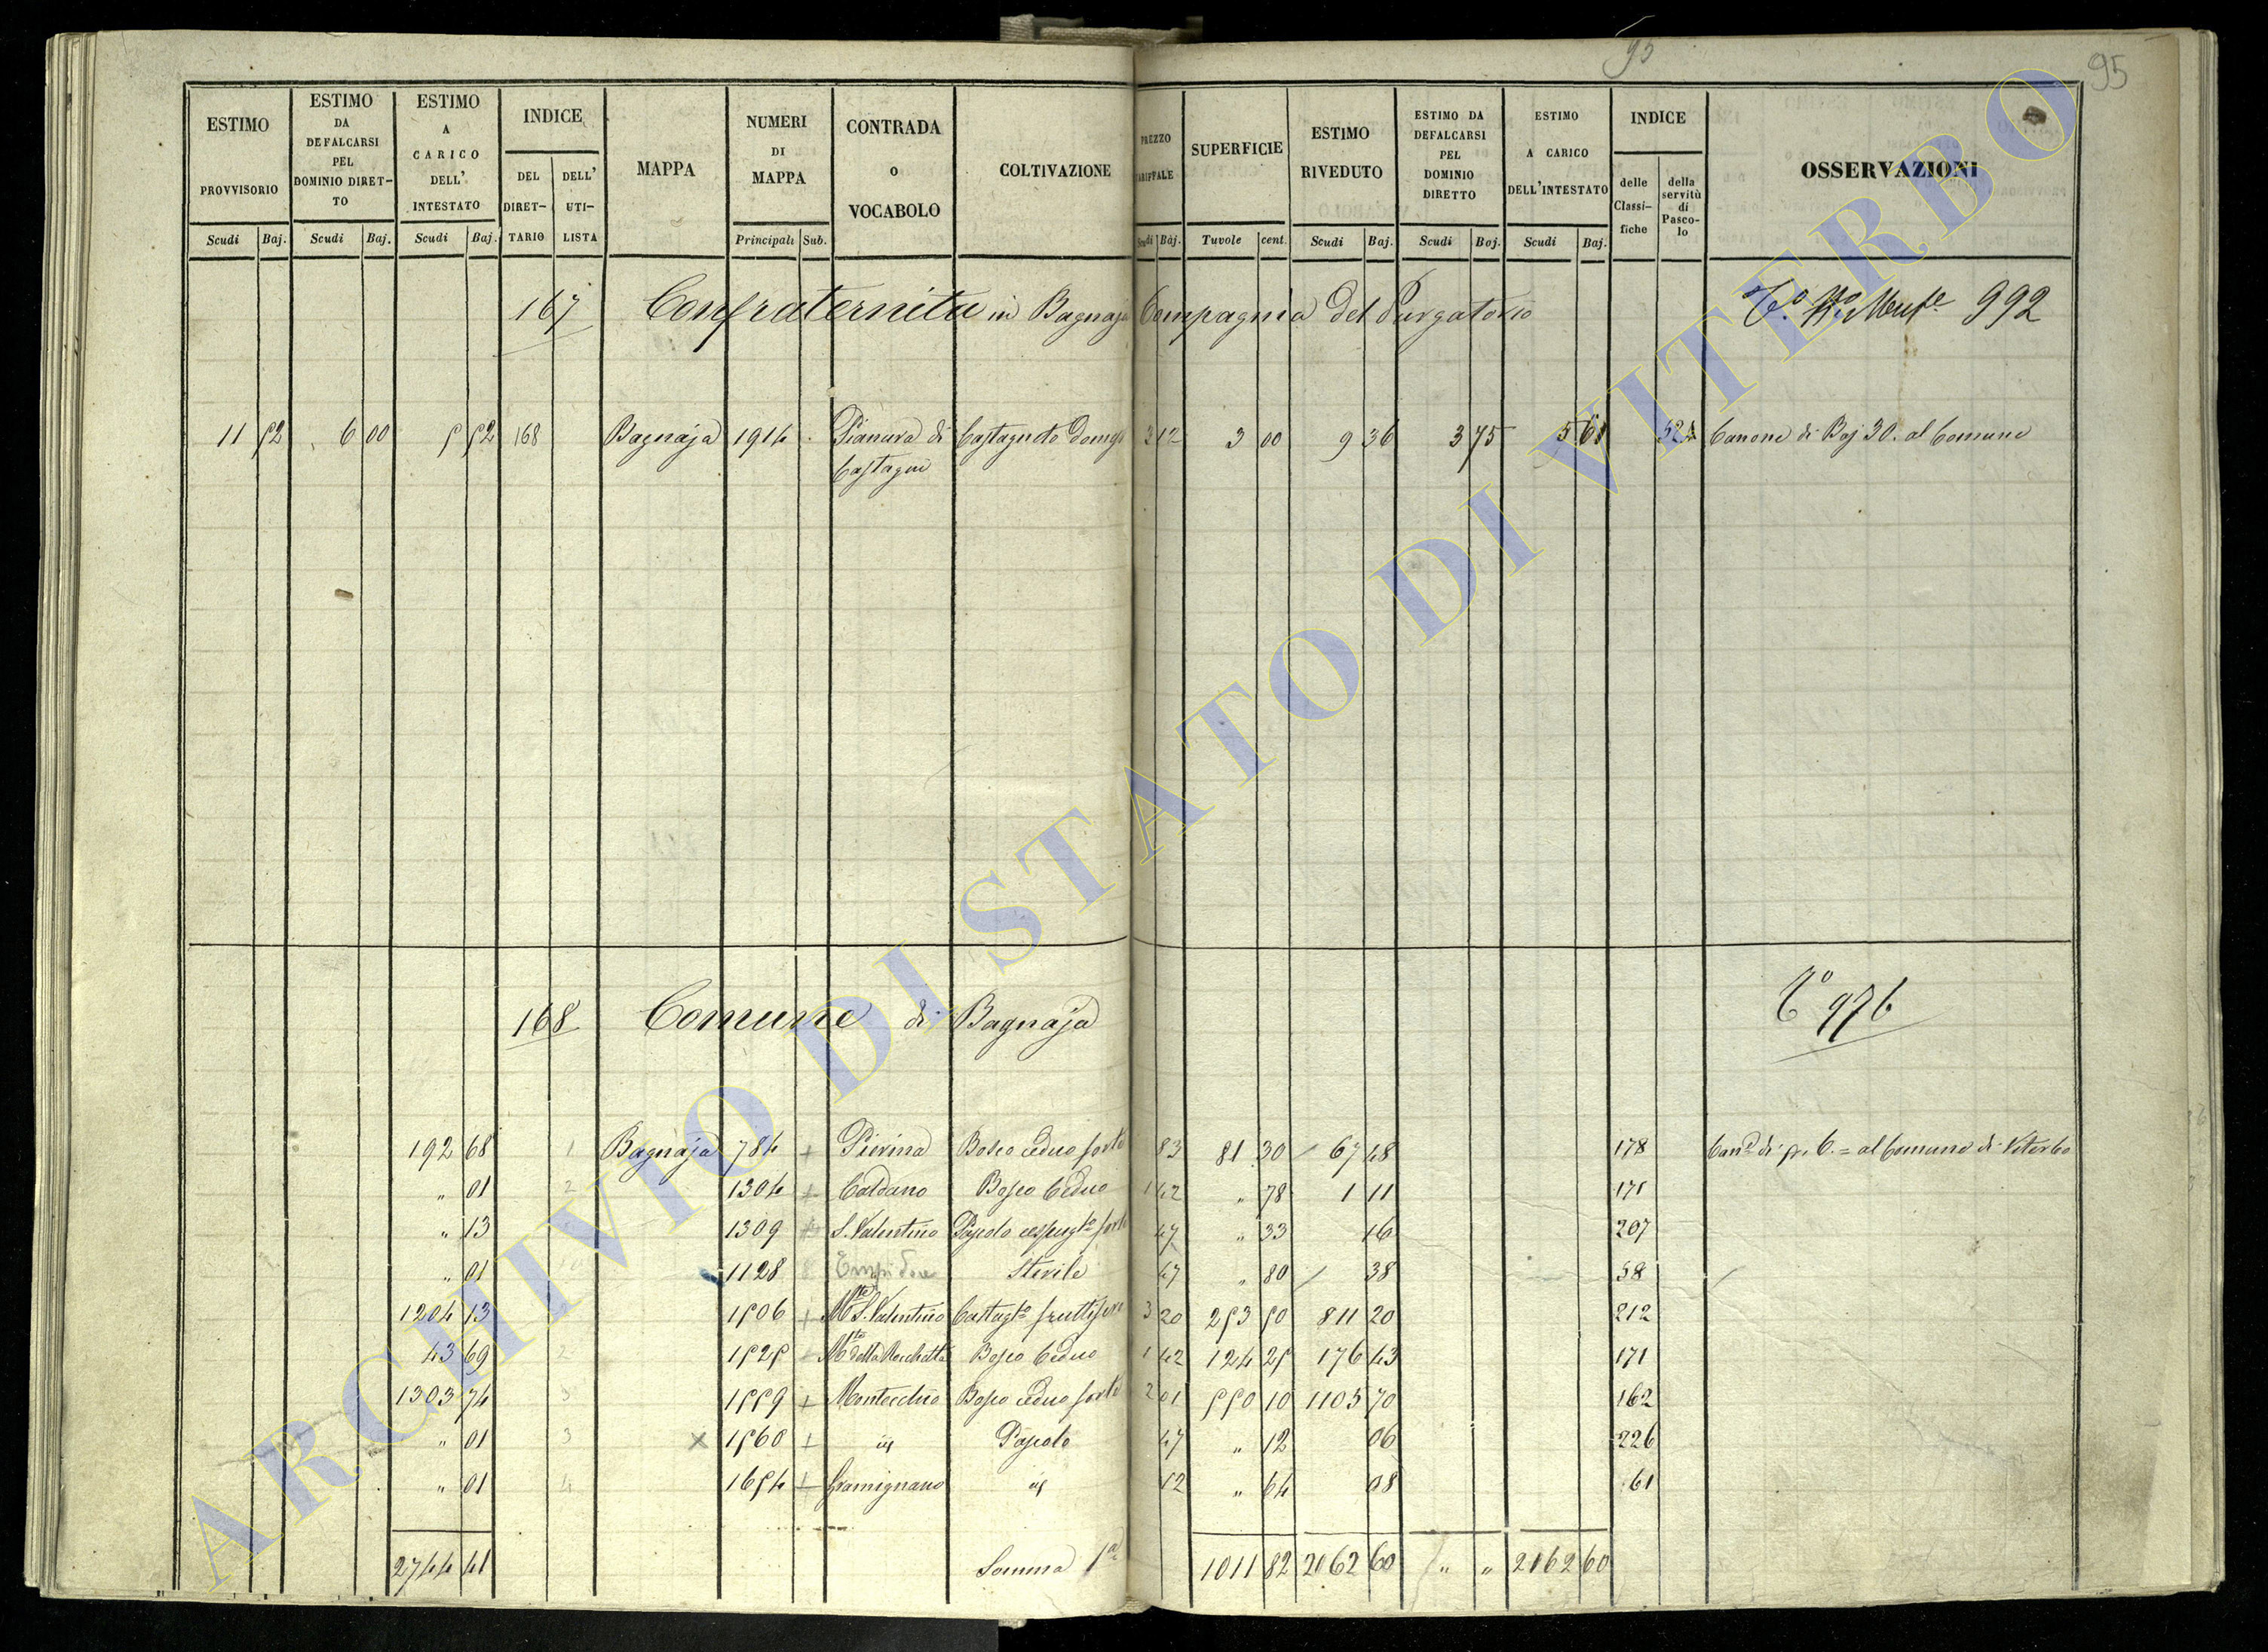 95
95
ESTIMO PROVVISORIO Scudi Baj.
ESTIMO DA DEFALCARSI PEL DOMINIO DIRETTO Scudi Baj.
ESTIMO A CARICO DELL' INTESTATO Scudi Baj.
INDICE DEL DIRETTARIO DELL' UTILISTA
MAPPA
NUMERI DI MAPPA Principali Sub.
CONTRADA o VOCABOLO
COLTIVAZIONE
PREZZO TARIFFALE Scudi Baj.
SUPERFICIE Tavole cent.
ESTIMO RIVEDUTO Scudi Baj.
ESTIMO DA DEFALCARSI PEL DOMINIO DIRETTO Scudi Baj.
ESTIMO A CARICO DELL'INTESTATO Scudi Baj.
INDICE delle Classifiche della servitù di Pascolo
OSSERVAZIONI
167 Confraternita in Bagnaja Compagnia del Purgatorio 992
11 52 6 00 5 52 168 Bagnaja 1914 Pianura di Castagneto domes 3 12 3 00 9 36 3 75 5 61 524 Canone di Baj 30. al Comune
Castagni
168 Comune di Bagnaja 976
192 68 1 Bagnaja 784 + Pierina Bosco ceduo forte 83 81 30 67 48 178 al Comune di Viterbo
" 01 2 1304 + Caldano Bosco Ceduo 1 42 " 78 1 11 171
" 13 1309 S. Valentino Pascolo cespugto forte 47 " 33 16 207
" 01 1128 Sterile 47 " 80 38 58
1204 13 1506 + Mte S. Valentino Castagto fruttifero 3 20 253 50 811 20 212
43 69 2 1525 Mte della Rocchetta Bosco Ceduo 1 42 124 25 176 43 171
1303 74 3 1559 + Montecchio Bosco ceduo forte 2 01 550 10 1105 70 162
" 01 3 x 1560 + id Pascolo 47 " 12 06 226
" 01 4 1654 + Gramignano id 12 " 64 08 61
2744 41 Somma 1a 1011 82 2062 60 " " 2062 60
ARCHIVIO DI STATO DI VITERBO